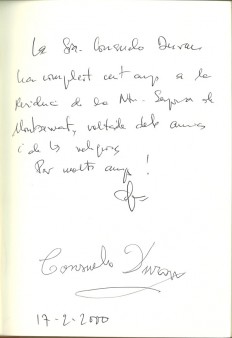 La Sra. Consuelo Duran
ha complert cent anys a la
Residència de la Mt. Senyora de
Montserrat, voltada dels avis
i de les religioses
Per molts anys!
Consuelo Duran
17-2-2000